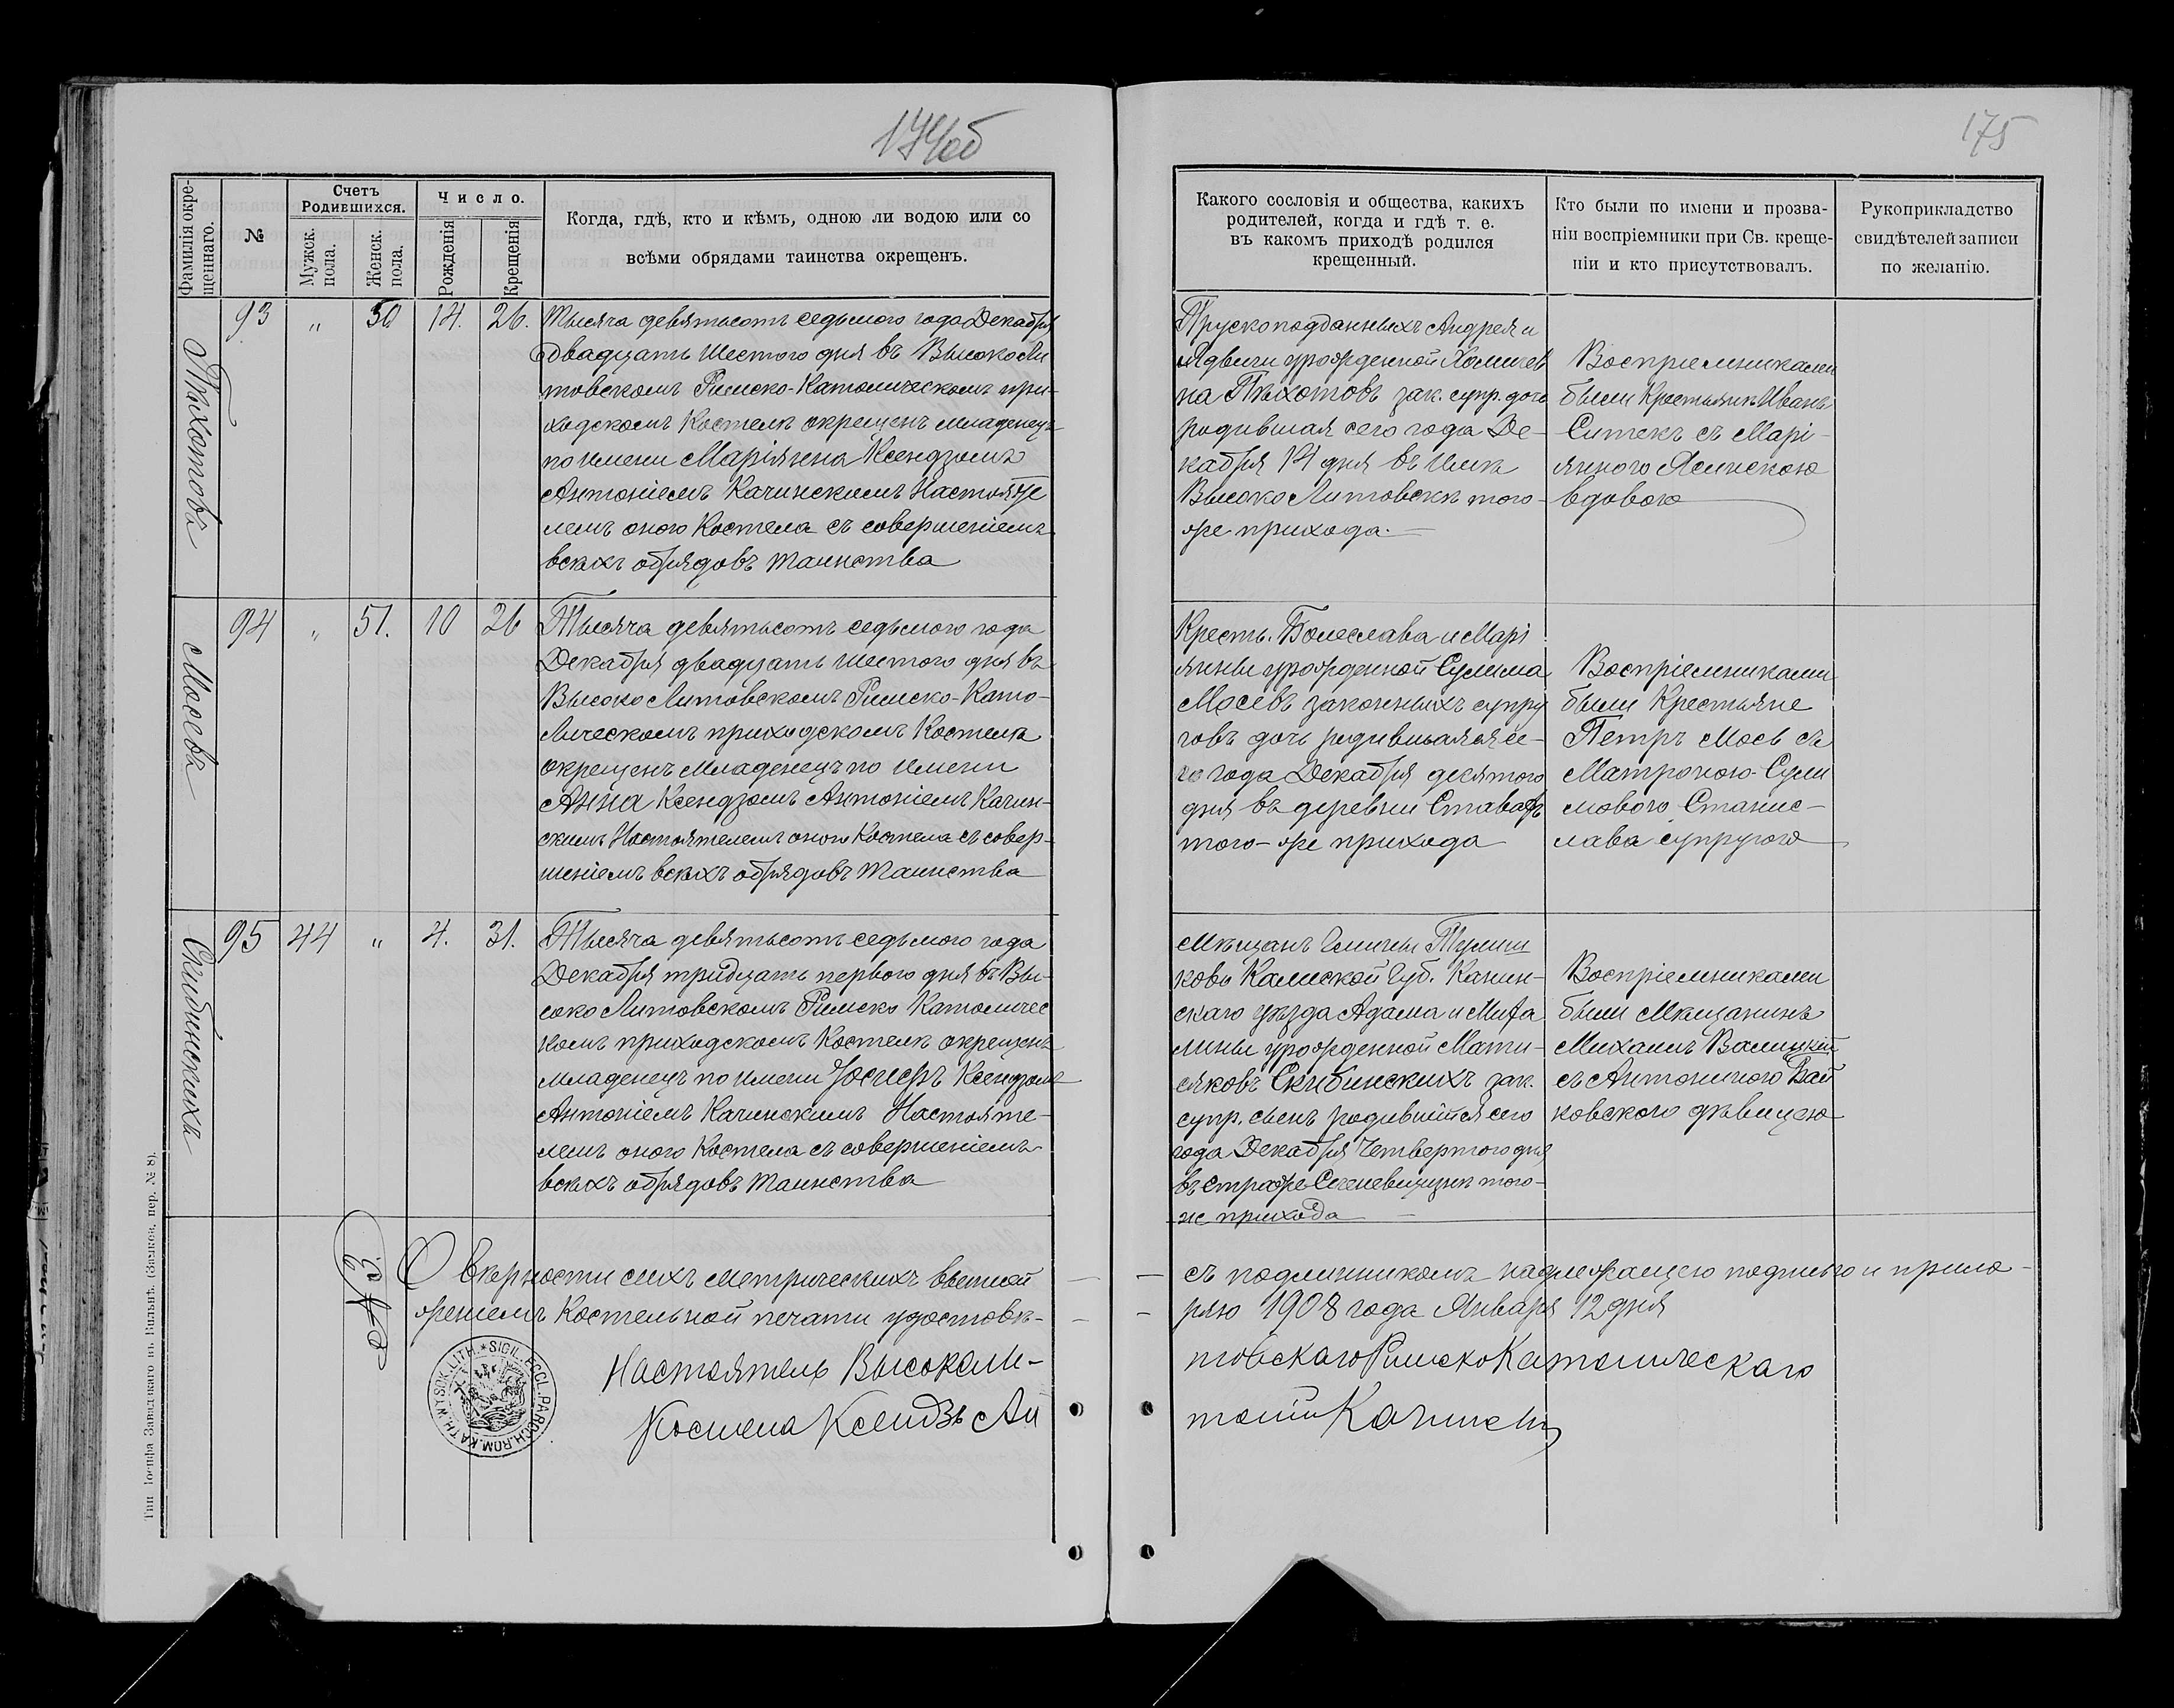 174об
175
Фамилія окре-
щеннаго.
№
Счетъ
Родившихся.
Мужск.
пола.
Женск.
пола.
Число.
Рожденія
Крещенія
Когда, гдѣ, кто и кѣмъ, одною ли водою или со
всѣми обрядами таинства окрещенъ.
Какого сословія и общества, какихъ
родителей, когда и гдѣ т. е.
въ какомъ приходѣ родился
крещенный.
Кто были по имени и прозва-
ніи воспріемники при Св. креще-
ніи и кто присутствовалъ.
Рукоприкладство
свидѣтелей записи
по желанію.
93 „ 50 14. 26.
Тысяча девятьсотъ седьмого года Декабря
двадцать шестого дня въ Высоко Ли
товскомъ Римско-Католическомъ при-
ходскомъ Костелѣ окрещенъ младенецъ
по имени Маріянна Ксендзомъ
Антоніемъ Качинскимъ Настояте
лемъ оного Костела съ совершеніемъ
всѣхъ обрядовъ таинства
Прускоподданныхъ Андрея и
Ядвиги урожденной
на зак. супр. дочь
родившая сего года Де-
кабря 14 дня въ
Высоко Литовскѣ того-
же прихода.
Воспріемниками
были Крестьянинъ Иванъ
Ситекъ съ Марі-
янною Ясинскою
вдовою
Мосевъ
94 „ 51. 10 26
Тысяча девятьсотъ седьмого года
Декабря двадцать шестого дня въ
Высоко Литовскомъ Римско-Като-
лическомъ приходскомъ Костелѣ
окрещенъ младенецъ по имени
Анна Ксендзомъ Антоніемъ Качин-
скимъ Настоятелемъ оного Костела съ совер-
шеніемъ всѣхъ обрядовъ таинства
Кресть. Болеслава и Марі
янны урожденной Сулима
Мосевъ законныхъ супру
говъ дочь родившаяся се-
го года Декабря десятого
дня въ деревни Ставахъ
того-же прихода
Воспріемниками
были Крестьяне
Петръ Мось съ
Матроною Сули
мовою Станис-
лава супругою
95 44 „ 4. 31.
Тысяча девятьсотъ седьмого года
Декабря тридцать первого дня въ Вы-
соко Литовскомъ Римско Католичес
комъ приходскомъ Костелѣ окрещенъ
младенецъ по имени Іосифъ Ксендзомъ
Антоніемъ Качинскимъ Настояте-
лемъ оного Костела съ совершеніемъ
всѣхъ обрядовъ таинства
Мѣщанъ Гмины Тулиш
ково Калиской Губ. Конин-
скаго уѣзда Адама и Миха
лины урожденной Мати-
сяковъ Скибинскихъ зак.
супр. сынъ родившійся сего
года Декабря четвертого дня
въ стражѣ того-
же прихода
Воспріемниками
были Мѣщанинъ
Михаилъ Валицкій
съ Антониною Вай
ковского дѣвицею
О вѣрности сихъ метрическихъ выписей — — съ подлинникомъ надлежащею подписью и прило-
женіемъ Костельной печати удостовѣ- — — ряю 1908 года Января 12 дня
Настоятель Высоколи-товскаго Римско Католическаго
Костела Ксендзъ Ан тоній Качинскій
SIGIL. ECCL. PAROCH. ROM. KATH. WYSOK. LITH.
Тип. Іосифа Завадзкаго въ Вильнѣ.